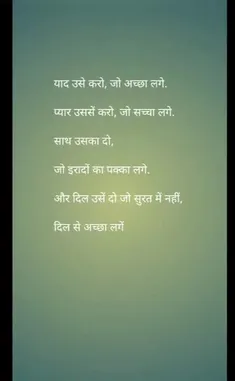 याद उसे करो, जो अच्छा लगे.
प्यार उससें करो, जो सच्चा लगे.
साथ उसका दो,
जो इरादों का पक्का लगे.
और दिल उसें दो जो सुरत में नहीं,
दिल से अच्छा लगें